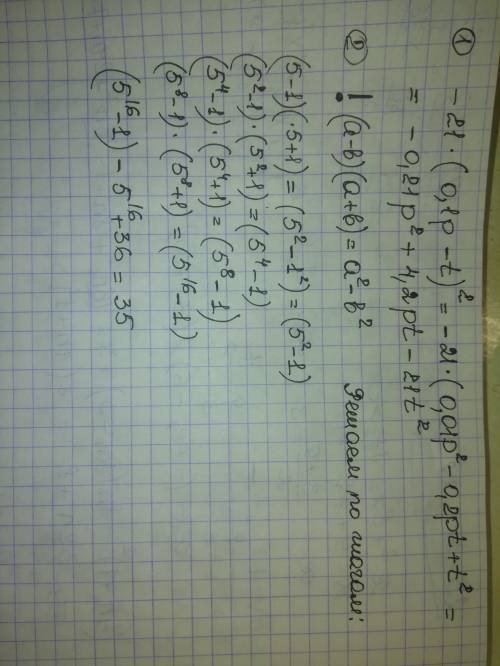 ① - 21·(0,1p-t)² = -21·(0,01p²-0,2pt+t²=
= -0,21p²+4,2pt-21t²
② ! (a-b)(a+b)=a²-b² Решаем по шагам:
(5-1)(·5+1)=(5²-1²)=(5²-1)
(5²-1)·(5²+1)=(5⁴-1)
(5⁴-1)·(5⁴+1)=(5⁸-1)
(5⁸-1)·(5⁸+1)=(5¹⁶-1)
(5¹⁶-1)-5¹⁶+36=35